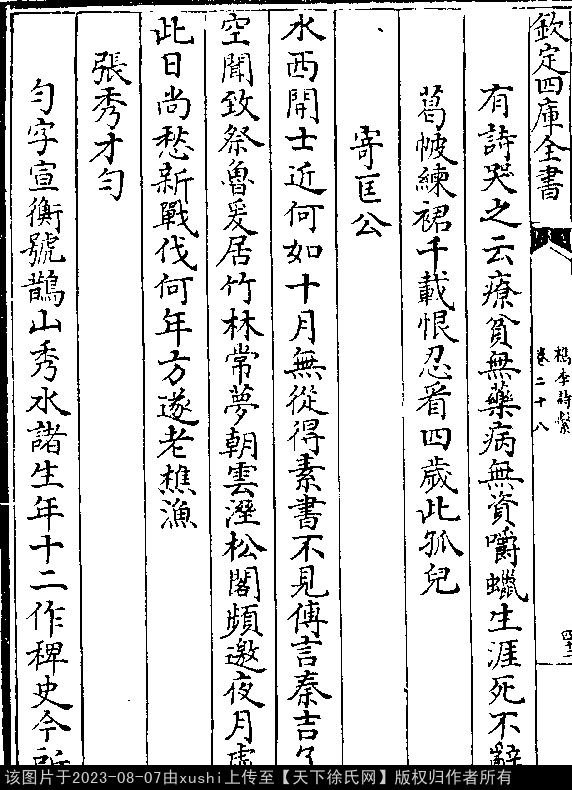 欽定四庫全書
檇李詩繫
卷二十八
四十二
有詩哭之云療貧無藥病無資嚼蠟生涯死不辭
葛帔練裙千載恨忍看四歲此孤兒
寄匡公
水西開士近何如十月無從得素書不見傅言秦吉了
空聞致祭魯爰居竹林常夢朝雲溼松閣頻邀夜月虛
此日尚愁新戰伐何年方遂老樵漁
張秀才勻
勻字宣衡號鵲山秀水諸生年十二作稗史今所
该图片于2023-08-07由xushi上传至【天下徐氏网】版权归作者所有